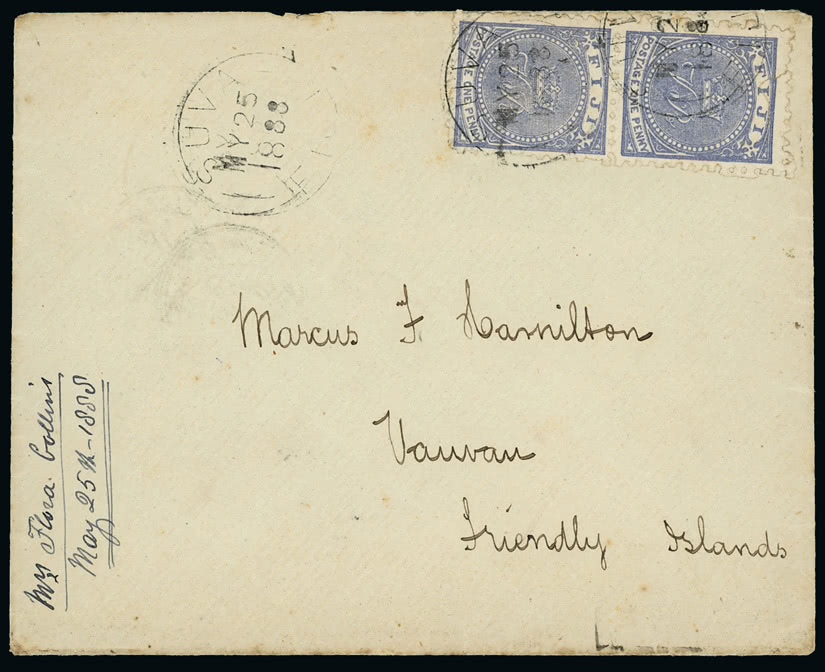 SUVA
MY 25
1888
FIJI
MY 25
1888
FIJI
POSTAGE ONE PENNY
MY 2
188
FIJI
POSTAGE ONE PENNY
Marcus F Hamilton
Vauvau
Friendly Islands
Mrs Flora Collins
May 25th-1888